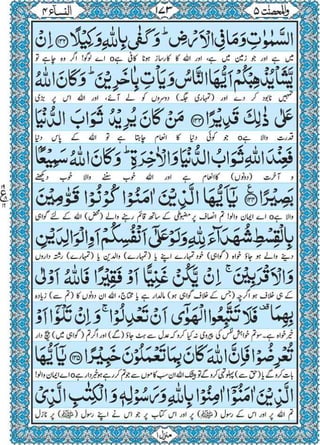 والمحصنت ۵ ۱۷۳ النسآء ۴
السَّمٰوٰتِ وَمَا فِی الْاَرْضِ ؕ وَكَفٰی بِاللّٰهِ وَكِیْلًا ﴿۱۳۲﴾ اِنْ
میں ہے اور جو زمین میں ہے، اور اللہ کا کارساز ہونا کافی ہے o اے لوگو! اگر وہ چاہے تو
یَّشَاْ یُذْهِبْكُمْ اَیُّهَا النَّاسُ وَیَاْتِ بِاٰخَرِیْنَ ؕ وَكَانَ اللّٰهُ
تمہیں نابود کر دے اور (تمہاری جگہ) دوسروں کو لے آئے، اور اللہ اس پر بڑی
عَلٰی ذٰلِكَ قَدِیْرًا ﴿۱۳۳﴾ مَنْ كَانَ یُرِیْدُ ثَوَابَ الدُّنْیَا
قدرت والا ہے o جو کوئی دنیا کا انعام چاہتا ہے تو اللہ کے پاس دنیا
فَعِنْدَ اللّٰهِ ثَوَابُ الدُّنْیَا وَالْاٰخِرَةِ ؕ وَكَانَ اللّٰهُ سَمِیْعًۢا
و آخرت (دونوں) کا انعام ہے اور اللہ خوب سننے والا خوب دیکھنے
بَصِیْرًا ﴿۱۳۴﴾ یٰۤاَیُّهَا الَّذِیْنَ اٰمَنُوْا كُوْنُوْا قَوّٰمِیْنَ
والا ہے o اے ایمان والو! تم انصاف پر مضبوطی کے ساتھ قائم رہنے والے (محض) اللہ کے لئے گواہی
بِالْقِسْطِ شُهَدَآءَ لِلّٰهِ وَلَوْ عَلٰۤی اَنْفُسِكُمْ اَوِ الْوَالِدَیْنِ
دینے والے ہو جاؤ خواہ (گواہی) خود تمہارے اپنے یا (تمہارے) والدین یا (تمہارے) رشتہ داروں
وَالْاَقْرَبِیْنَ ۚ اِنْ یَّكُنْ غَنِیًّا اَوْ فَقِیْرًا فَاللّٰهُ اَوْلٰی
کے ہی خلاف ہو، اگرچہ (جس کے خلاف گواہی ہو) مالدار ہے یا محتاج، اللہ ان دونوں کا (تم سے) زیادہ
بِهِمَا ۫ فَلَا تَتَّبِعُوا الْهَوٰۤی اَنْ تَعْدِلُوْا ۚ وَاِنْ تَلْوٗۤا اَوْ
خیر خواہ ہے۔ سو تم خواہشِ نفس کی پیروی نہ کیا کرو کہ عدل سے ہٹ جاؤ (گے) اور اگر تم (گواہی میں) پیچ دار
تُعْرِضُوْا فَاِنَّ اللّٰهَ كَانَ بِمَا تَعْمَلُوْنَ خَبِیْرًا ﴿۱۳۵﴾ یٰۤاَیُّهَا
بات کرو گے یا (حق سے) پہلو تہی کرو گے تو بیشک اللہ ان سب کاموں سے جو تم کر رہے ہو خبردار ہے o اے ایمان والو!
الَّذِیْنَ اٰمَنُوْۤا اٰمِنُوْا بِاللّٰهِ وَرَسُوْلِهٖ وَالْكِتٰبِ الَّذِیْ
تم اللہ پر اور اس کے رسول (ﷺ) پر اور اس کتاب پر جو اس نے اپنے رسول (ﷺ) پر نازل
منزل ۱